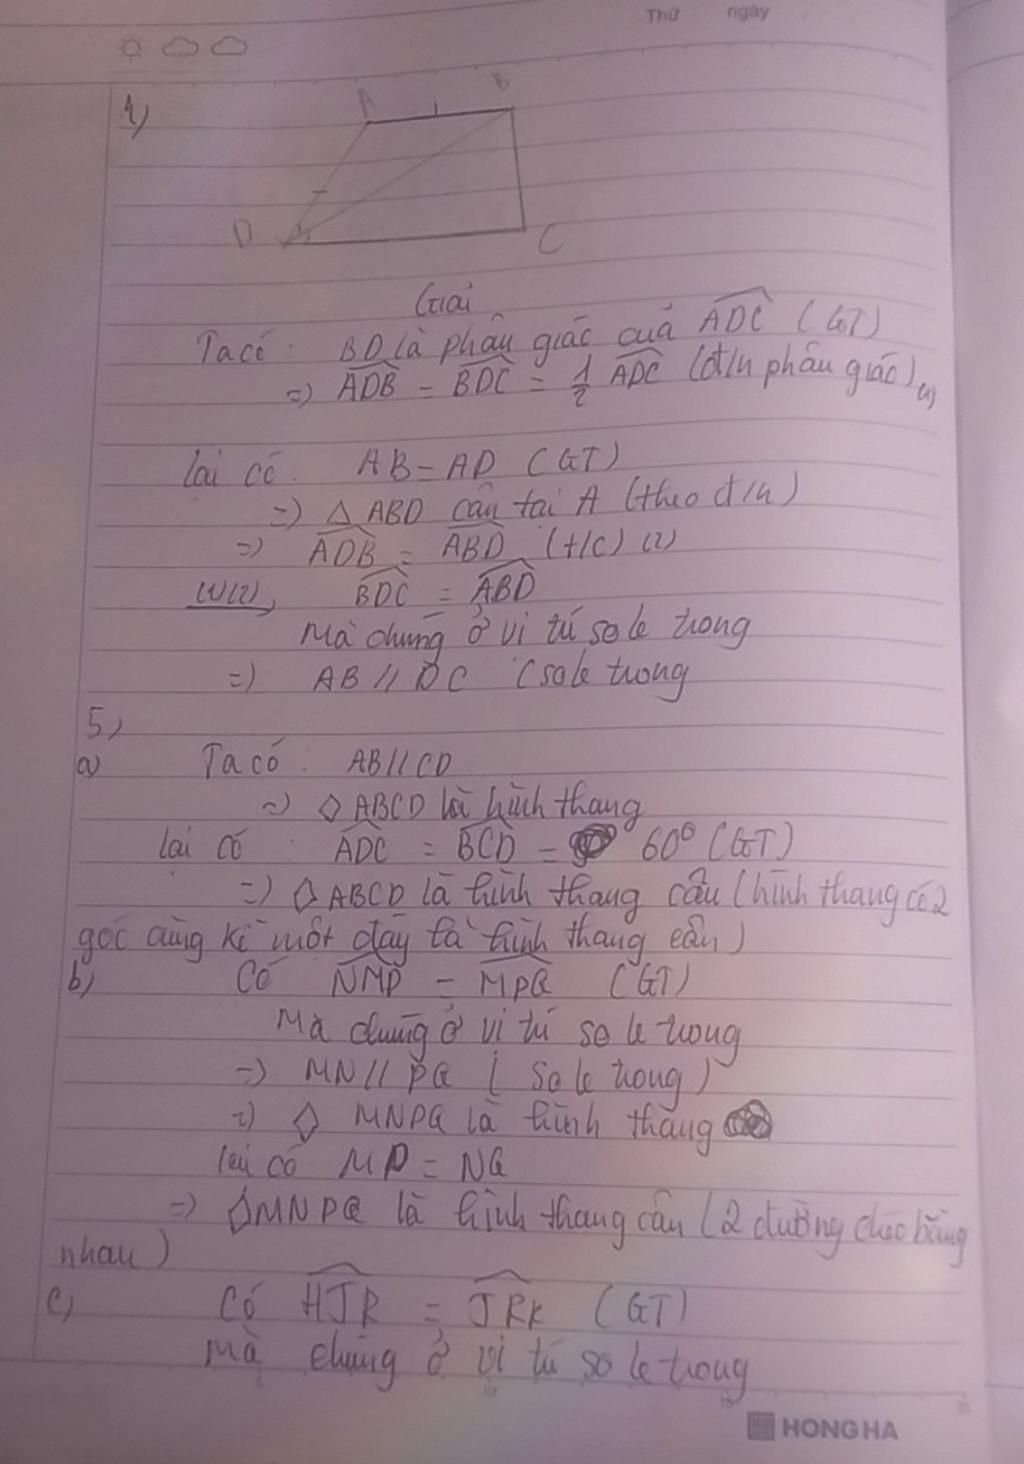 Thứ ngày
4)
A B
D C
Giải
Ta có: BD là phân giác của ADC (GT)
=> ADB = BDC = 1/2 ADC (đ/n phân giác) (1)
lại có: AB = AD (GT)
=> △ ABD cân tại A (theo đ/n)
=> ADB = ABD (t/c) (2)
(1)(2) BDC = ABD
Mà chúng ở vị trí so le trong
=> AB // DC (so le trong
5)
a) Ta có: AB // CD
=> ◇ ABCD là hình thang
lại có ADC = BCD = 60° (GT)
=> ◇ ABCD là hình thang cân (hình thang có 2
góc cùng kề một đáy là hình thang cân)
b) Có NMP = MPQ (GT)
Mà chúng ở vị trí so le trong
=> MN // PQ (so le trong)
=> ◇ MNPQ là hình thang
lại có MP = NQ
=> ◇ MNPQ là hình thang cân (2 đường chéo bằng
nhau)
c) Có HJR = JRK (GT)
Mà chúng ở vị trí so le trong
HONG HA